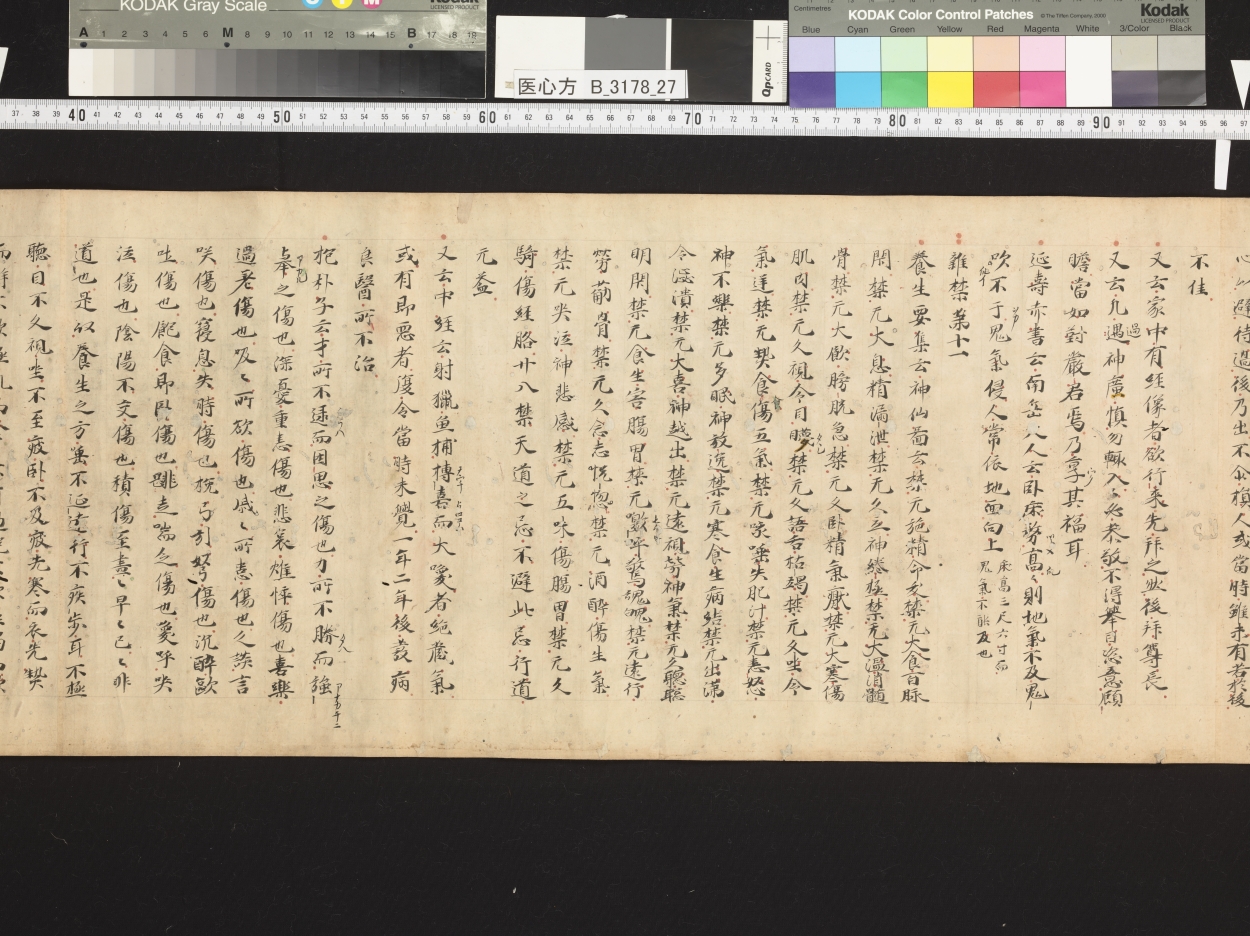 KODAK Gray Scale
Kodak
LICENSED PRODUCT
A 1 2 3 4 5 6 M 8 9 10 11 12 13 14 15 B 17 18 19
医心方 B_3178_27
QPCARD
Centimetres
KODAK Color Control Patches
© The Tiffen Company, 2000
Kodak
LICENSED PRODUCT
Blue Cyan Green Yellow Red Magenta White 3/Color Black
37 38 39 40 41 42 43 44 45 46 47 48 49 50 51 52 53 54 55 56 57 58 59 60 61 62 63 64 65 66 67 68 69 70 71 72 73 74 75 76 77 78 79 80 81 82 83 84 85 86 87 88 89 90 91 92 93 94 95 96 97
避待過後乃出不人或當時雖未有若於後
不佳
又云家中有經像者欲行来先拜之然後拜尊長
又云凡遇神廣慎勿輙入必恭敬不得舉目恣意顧
瞻當如對嚴君焉乃享其福耳
延壽赤書云南岳夫人云卧床務高高則地氣不及鬼
吹不干鬼氣侵人常依地面向上
床高三尺六寸而
鬼氣不能及也
雜禁第十一
養生要集云神仙圖云禁无施精命夭禁无大食百脉
閇禁无大息精漏泄禁无久立神縿極禁无大温消髓
骨禁无大飲膀胱急禁无久卧精氣厭禁无大寒傷
肌肉禁无久視令目禁无久語舌枯竭禁无久坐令
氣逆禁无熱食傷五氣禁无唾失肥汁禁无恚怒
神不樂禁无多眠神放逸禁无寒食生病結禁无出涕
令澀潰禁无大喜神越出禁无遠視勞神氣禁无久聽聡
明閇禁无食生害腸胃禁无噭呼驚魂魄禁无遠行
勞筋骨禁无久念志恍惚禁无酒醉傷生氣
禁无哭泣神悲感禁无五味傷腸胃禁无久
騎傷經胳廿八禁天道之忌不避此忌行道
无益
又云中經云射獵魚捕慱喜而大喚者絶藏氣
或有即惡者廋令當時未覺一年二年後發病
良醫所不治
抱朴子云才所不逮而困思之傷也力所不勝而強
舉之傷也深憂重恚傷也悲哀燋悴傷也喜樂
過差傷也汲汲所欲傷也戚戚所恚傷也久談言
咲傷也寝息失時傷也挽弓引弩傷也沉醉歐
吐傷也飽食即卧傷也跳走喘乏傷也歡呼哭
泣傷也陰陽不交傷也積傷至盡盡早早已已非
道也是以養生之方唾不延遠行不疾歩耳不極
聽目不久視坐不至疲卧不及疲先寒而衣先熱